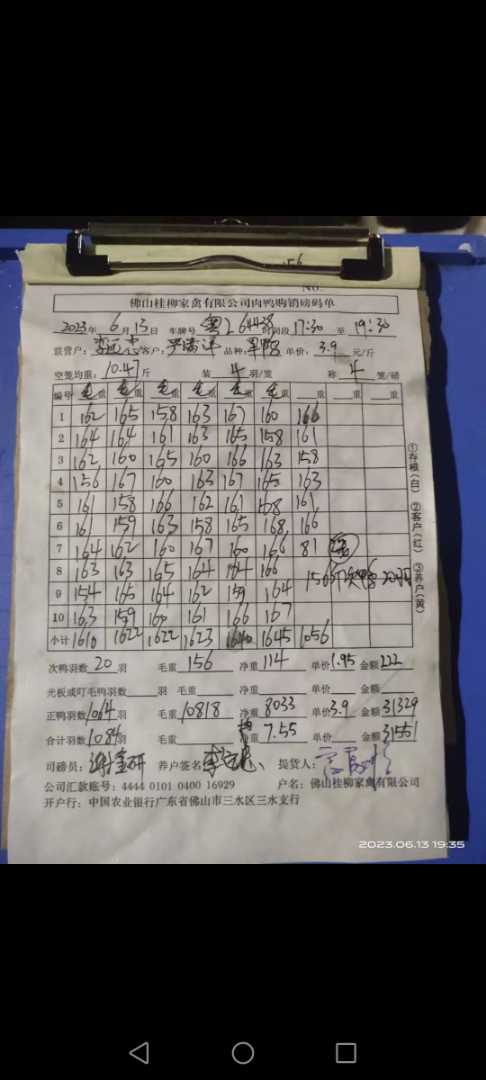 156
NO.
佛山桂柳家禽有限公司肉鸭购销磅码单
2023年 6月13日 车牌号 粤L64438 时间段 17:30 至 19:30
联营户: 客户: 品种: 单价: 3.9 元/斤
空笼均重: 10.47 斤 装 4 羽/笼 称 4 笼/磅
编号 毛重 毛重 毛重 毛重 毛重 毛重 重 重 重
1 162 165 158 163 167 160 166
2 164 164 161 163 165 158 161
3 162 160 165 160 166 163 158
4 156 167 160 163 167 165 163
5 161 158 166 162 161 158 161
6 161 159 163 158 165 168 166
7 164 162 160 167 160 166 81
8 163 163 165 164 164 166
9 154 165 164 162 159 164
10 163 159 160 161 166 167
小计 1610 1622 1622 1623 1640 1645 1056
①存根(白) ②客户(红) ③养户(黄)
次鸭羽数 20 羽 毛重 156 净重 114 单价 1.95 金额 222
光板或叮毛鸭羽数 羽 毛重 净重 单价 金额
正鸭羽数 1064 羽 毛重 10818 净重 8033 单价 3.9 金额 31329
合计羽数 1084 羽 毛重 均重 7.55 单价 金额 31551
司磅员: 养户签名 提货人:
公司汇款账号: 4444 0101 0400 16929 户名: 佛山桂柳家禽有限公司
开户行: 中国农业银行广东省佛山市三水区三水支行
2023.06.13 19:35